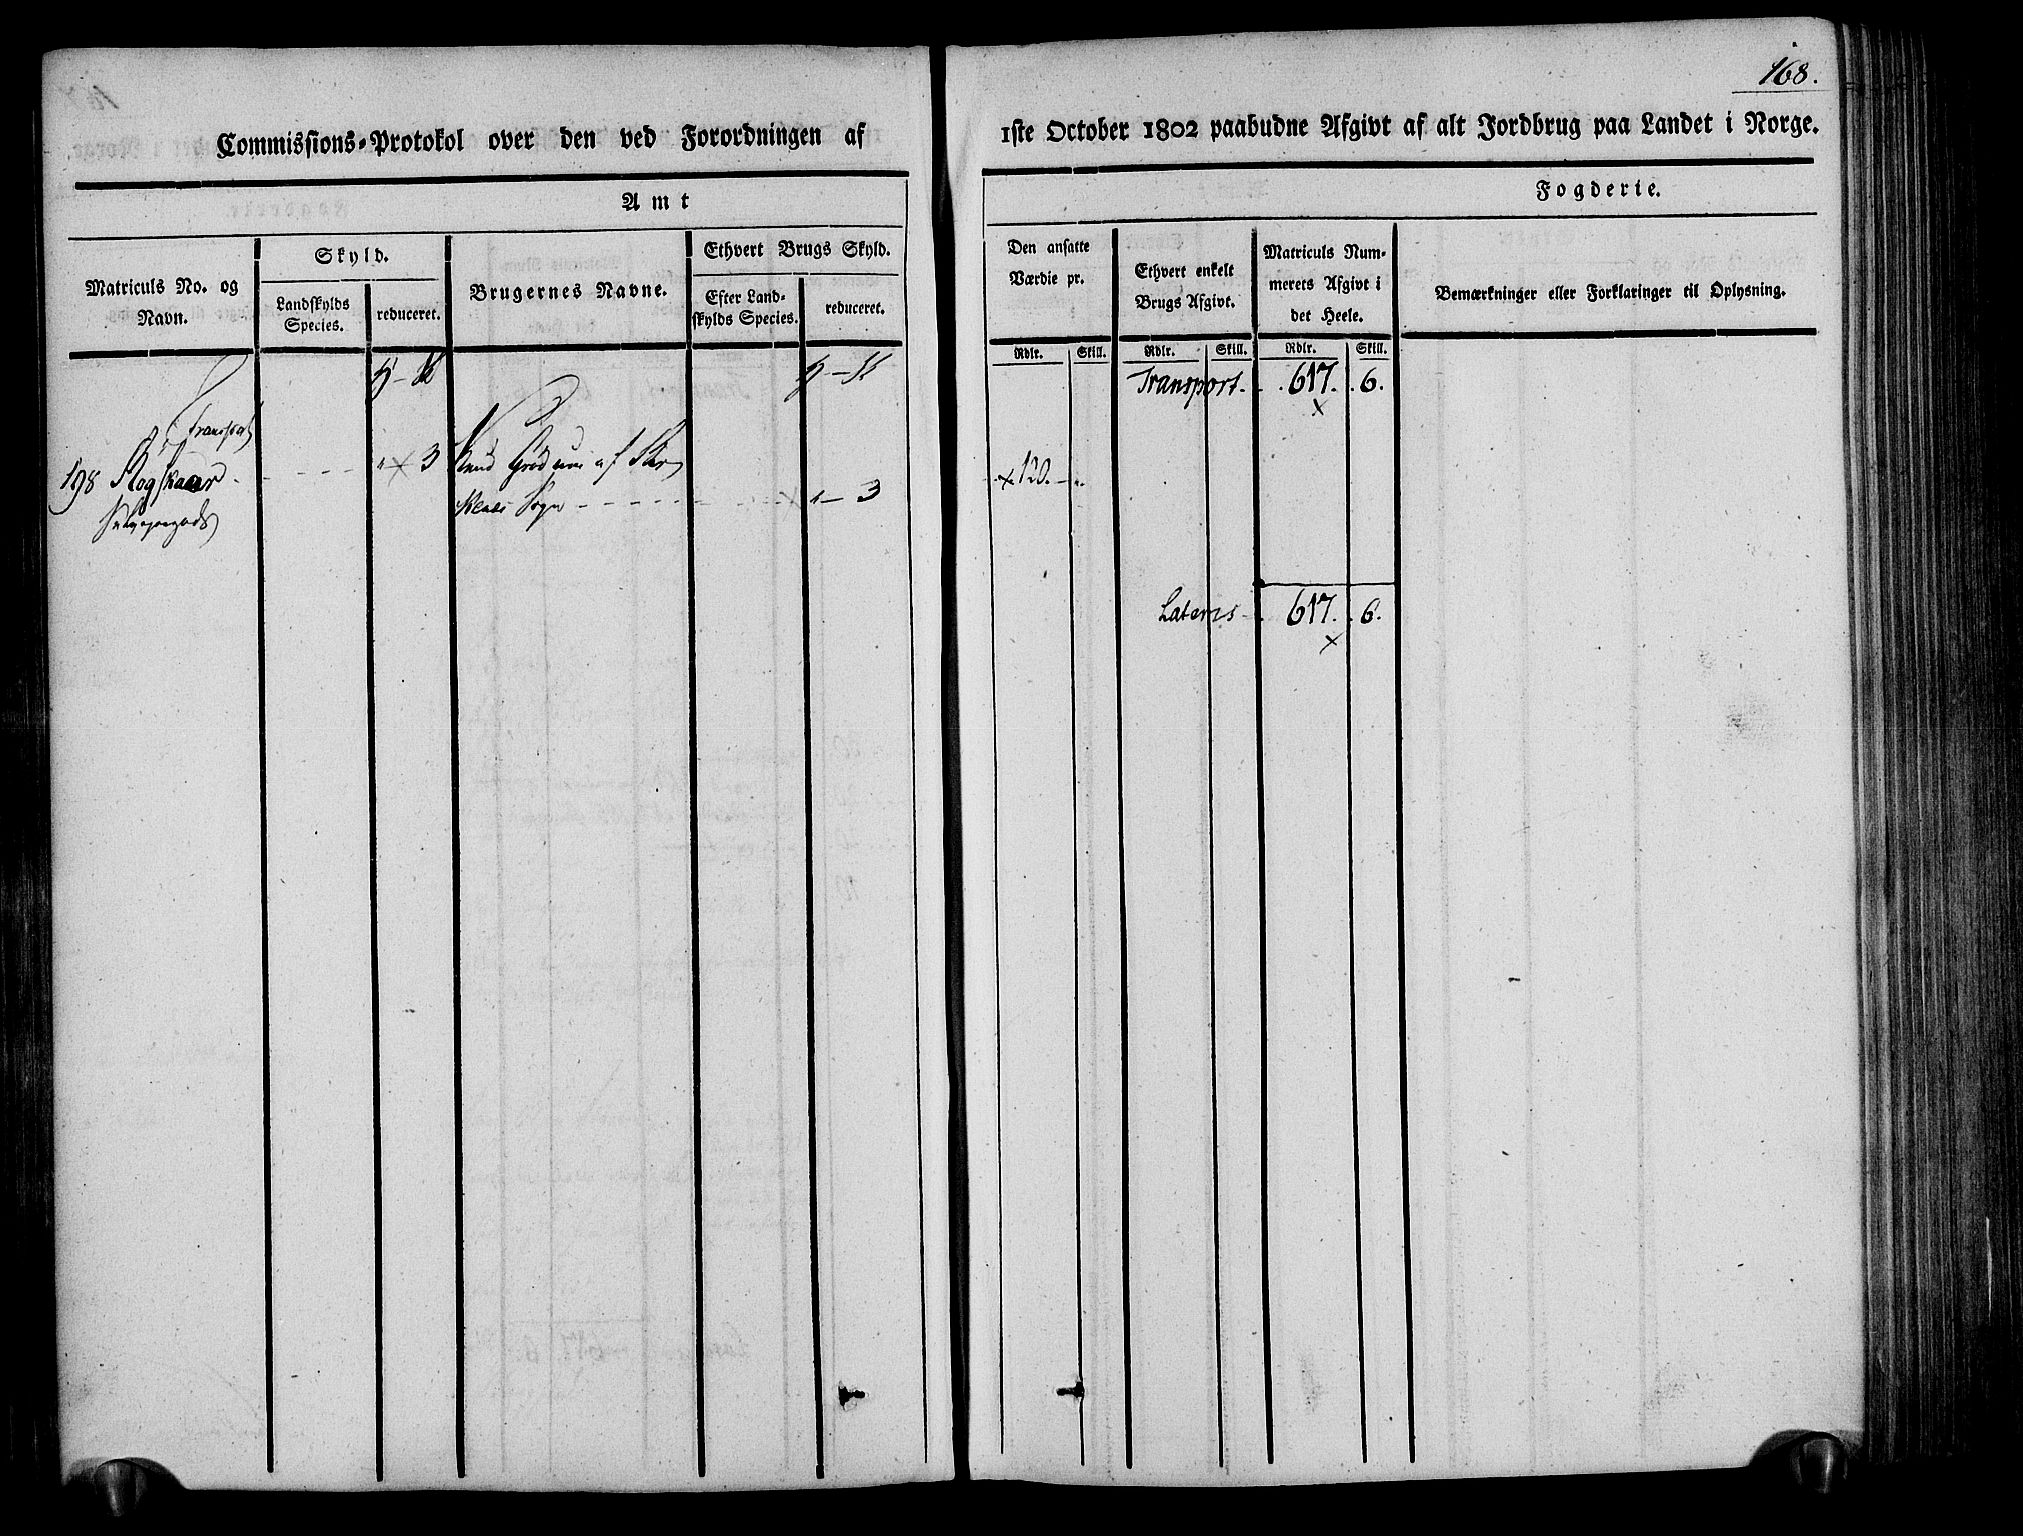 168.
Commissions-Protokol over den ved Forordningen af
1ste October 1802 paabudne Afgivt af alt Jordbrug paa Landet i Norge.
Amt
Fogderie.
Matriculs No. og
Navn.
Skyld.
Landskylds
Species.
reduceret.
Brugernes Navne.
Ethvert Brugs Skyld.
Efter Land-
skylds Species.
reduceret.
Den ansatte
Værdie pr.
Ethvert enkelt
Brugs Afgivt.
Matriculs Num-
merets Afgivt i
det Heele.
Bemærkninger eller Forklaringer til Oplysning.
Rdlr. Skill. Rdlr. Skill. Rdlr. Skill.
Transport. 617. 6.
Transport
198 Røgskaar 3 Knud af
Sogn 3
120.
Lateris 617. 6.